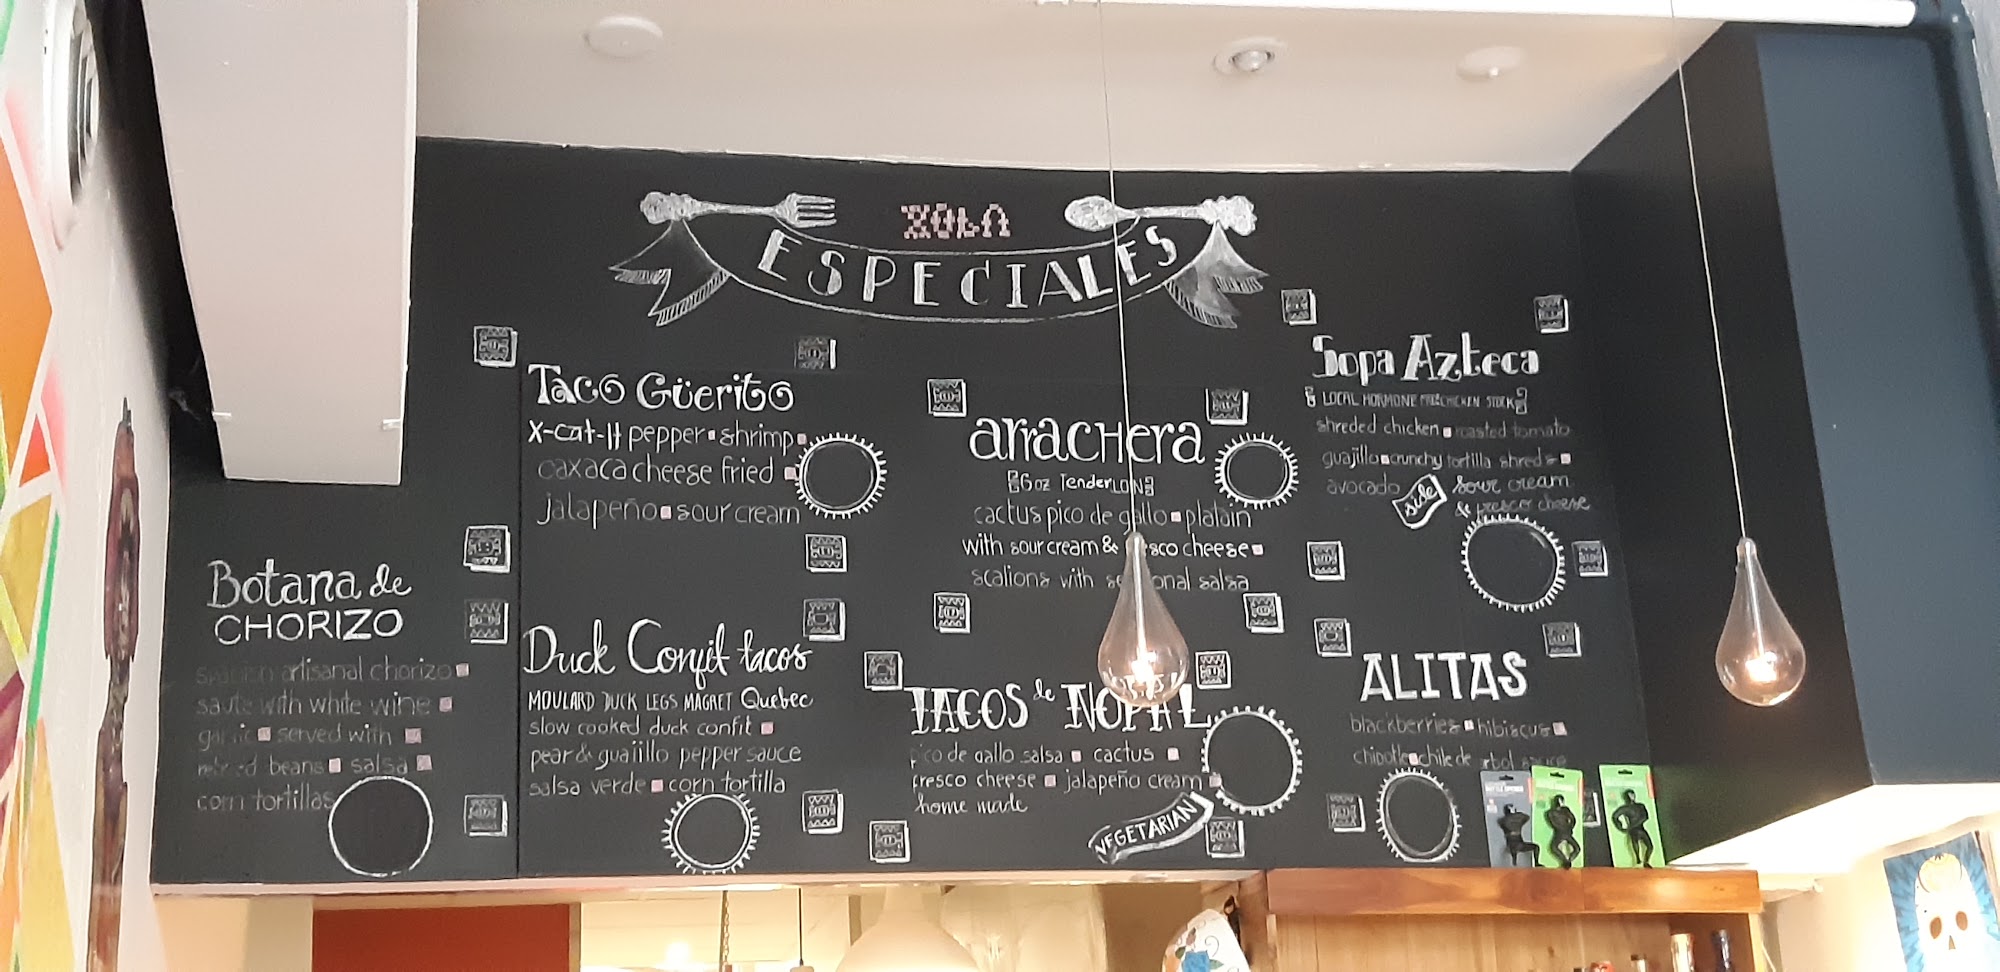 XOLA
ESPECIALES
Taco Güerito
x-cat-H pepper shrimp
oaxaca cheese fried
jalapeño sour cream
Botana de
CHORIZO
artisanal chorizo
saute with white wine
garlic served with
beans salsa
corn tortillas
Duck Confit tacos
MOULARD DUCK LEGS MAGRET Quebec
slow cooked duck confit
pear & guajillo pepper sauce
salsa verde corn tortilla
arracHera
6oz TenderLOIN
cactus pico de gallo platain
with sour cream & cheese
scalions with salsa
TACOS de NOPAL
pico de gallo salsa cactus
fresco cheese jalapeño cream
home made
VEGETARIAN
Sopa Azteca
LOCAL HORMONE FREE CHICKEN STOCK
shreded chicken roasted tomato
guajillo crunchy tortilla shreds
avocado side sour cream
& fresco cheese
ALITAS
blackberries hibiscus
chipotle chile de arbol sauce